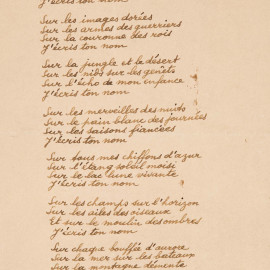 J'écris ton nom
Sur les images dorées
Sur les armes des guerriers
Sur la couronne des rois
J'écris ton nom
Sur la jungle et le désert
Sur les nids sur les genêts
Sur l'écho de mon enfance
J'écris ton nom
Sur les merveilles des nuits
Sur le pain blanc des journées
Sur les saisons fiancées
J'écris ton nom
Sur tous mes chiffons d'azur
Sur l'étang soleil moisi
Sur le lac lune vivante
J'écris ton nom
Sur les champs sur l'horizon
Sur les ailes des oiseaux
Et sur le moulin des ombres
J'écris ton nom
Sur chaque bouffée d'aurore
Sur la mer sur les bateaux
Sur la montagne démente